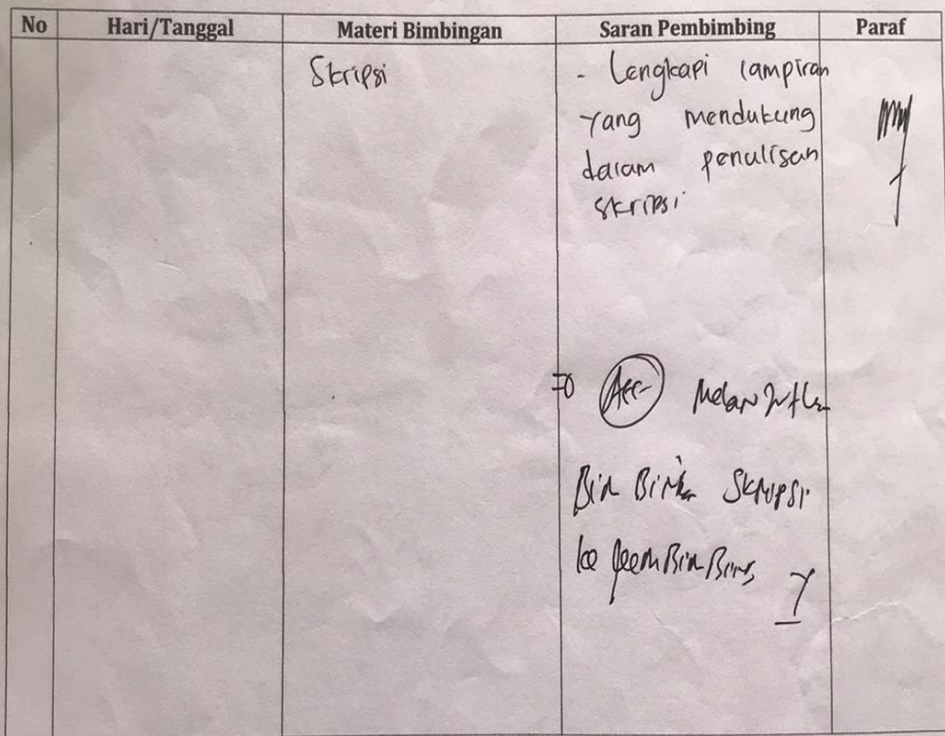 No Hari/Tanggal Materi Bimbingan Saran Pembimbing Paraf
Skripsi - Lengkapi lampiran
yang mendukung
dalam penulisan
skripsi
Acc Melanjutkan
Bimbingan Skripsi
ke pembimbing I